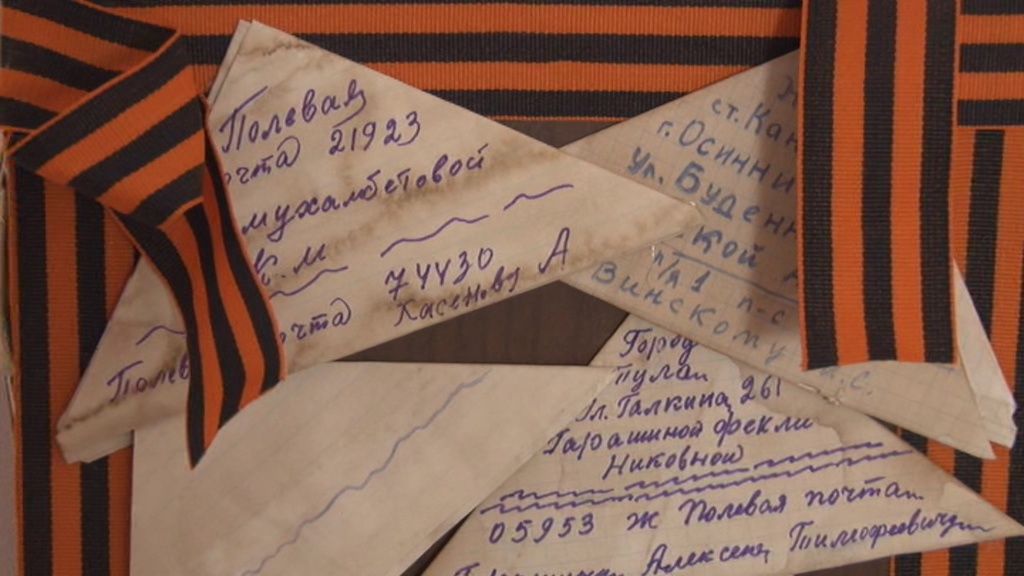 Полевая
очта 21923
мухамбетовой
к.м
74430 А
очта Касенову
Полев
ст.Кан
г.Осинни
Ул. Буденн
кой
п/я 1 п-с
Винскому
Город
Тула
Ул. Галкина, 261
Гарашиной Фекли
Никовной
05953 Ж Полевая почта
Алексею Тимофеевичу